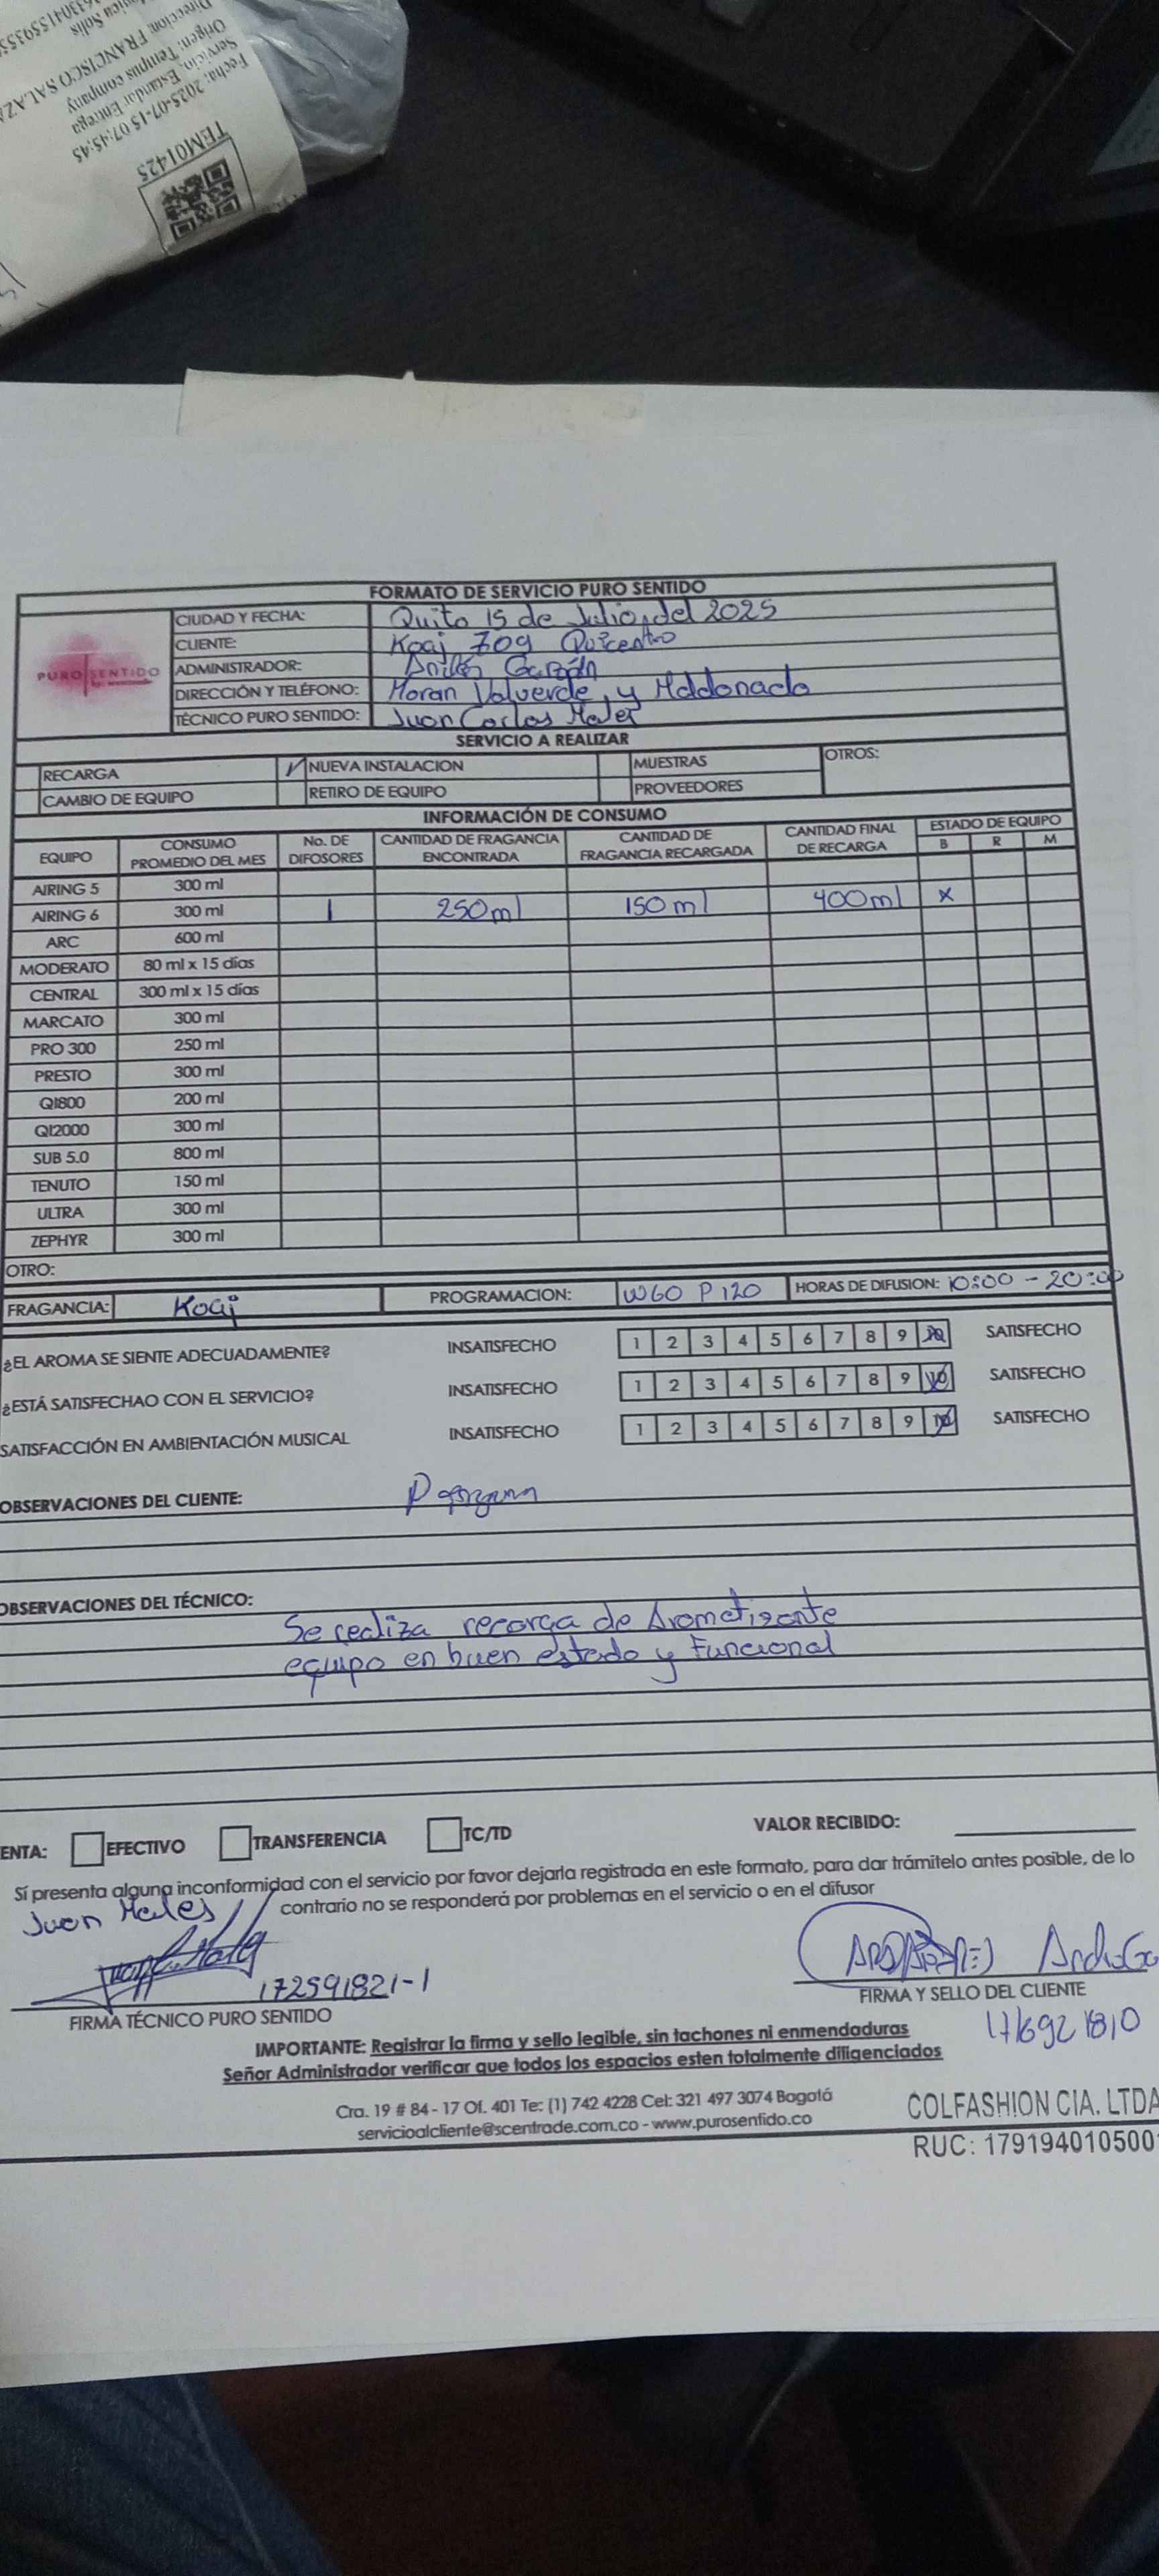 TEM01425
Fecha: 2025-07-15 07:45:45
Servicio: Estandar Entrega
Origen: Tempus company
FORMATO DE SERVICIO PURO SENTIDO
PURO SENTIDO
CIUDAD Y FECHA: Quito 15 de Julio, del 2025
CLIENTE: Koaj 709 Quicentro
ADMINISTRADOR: Garzón
DIRECCIÓN Y TELÉFONO: Moran Valverde, y Maldonado
TÉCNICO PURO SENTIDO: Juan Carlos Males
SERVICIO A REALIZAR
RECARGA NUEVA INSTALACION MUESTRAS OTROS:
CAMBIO DE EQUIPO RETIRO DE EQUIPO PROVEEDORES
INFORMACIÓN DE CONSUMO
EQUIPO CONSUMO PROMEDIO DEL MES No. DE DIFOSORES CANTIDAD DE FRAGANCIA ENCONTRADA CANTIDAD DE FRAGANCIA RECARGADA CANTIDAD FINAL DE RECARGA ESTADO DE EQUIPO
B R M
AIRING 5 300 ml
AIRING 6 300 ml 1 250ml 150ml 400ml x
ARC 600 ml
MODERATO 80 ml x 15 días
CENTRAL 300 ml x 15 días
MARCATO 300 ml
PRO 300 250 ml
PRESTO 300 ml
QI800 200 ml
QI2000 300 ml
SUB 5.0 800 ml
TENUTO 150 ml
ULTRA 300 ml
ZEPHYR 300 ml
OTRO:
FRAGANCIA: Koaj PROGRAMACION: W60 P120 HORAS DE DIFUSION: 10:00 - 20:00
¿EL AROMA SE SIENTE ADECUADAMENTE? INSATISFECHO 1 2 3 4 5 6 7 8 9 10 SATISFECHO
¿ESTÁ SATISFECHAO CON EL SERVICIO? INSATISFECHO 1 2 3 4 5 6 7 8 9 10 SATISFECHO
SATISFACCIÓN EN AMBIENTACIÓN MUSICAL INSATISFECHO 1 2 3 4 5 6 7 8 9 10 SATISFECHO
OBSERVACIONES DEL CLIENTE:
OBSERVACIONES DEL TÉCNICO:
Se realiza recarga de Aromatizante
equipo en buen estado y Funcional
ENTA: EFECTIVO TRANSFERENCIA TC/TD VALOR RECIBIDO:
Sí presenta alguna inconformidad con el servicio por favor dejarla registrada en este formato, para dar trámitelo antes posible, de lo
contrario no se responderá por problemas en el servicio o en el difusor
Juan Males
172591821-1
FIRMA TÉCNICO PURO SENTIDO
FIRMA Y SELLO DEL CLIENTE
IMPORTANTE: Registrar la firma y sello legible, sin tachones ni enmendaduras
Señor Administrador verificar que todos los espacios esten totalmente diligenciados
Cra. 19 # 84 - 17 Of. 401 Te: (1) 742 4228 Cel: 321 497 3074 Bogotá
servicioalcliente@scentrade.com.co - www.purosentido.co
COLFASHION CIA. LTDA
RUC: 179194010500